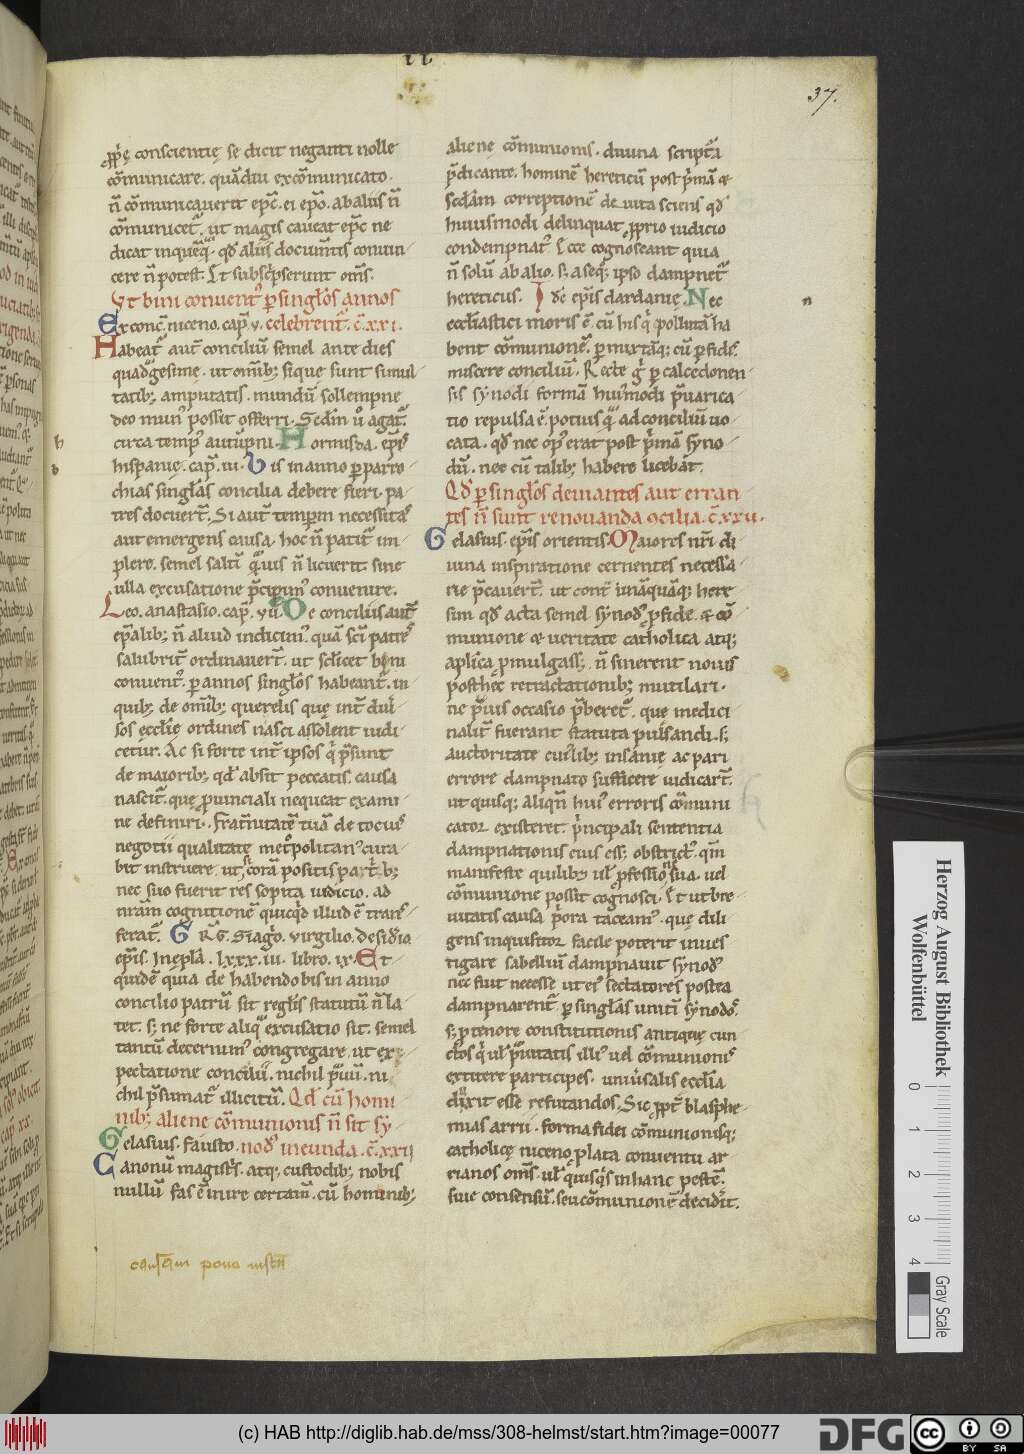 37.
ꝓprię conscientię se dicit neganti nolle
cōmunicare. quādiu excōmunicato.
n̄ cōmunicauerit epc̄. ei ep̄o. ab aliis n̄
cōmunicet᷑. ut magis caueat epc̄ ne
dicat in quēq̄. qd̄ aliis documītis conuin-
cere n̄ potest. Et subscͥpserunt om̄s.
Vt bini conuent᷑ ꝑ singl̄os annos
Ex conc̄. niceno. cap̄. v. celebrent᷑. c̄. xxi.
Habeat᷑ aut̄ conciliū semel ante dies
quadͣgesime. ut om̄ib; si que sunt simul-
tatib; amputatis. mundū sollempne
deo mun᷒ possit offerri. Sed̄m ū agat᷑
circa temp᷒ autūpni. Hormisda. ep̄is
hispanię. cap̄. iii. Bis in anno ꝑ parro-
chias singl̄as concilia debere fieri. pa-
tres docuer̄t. Si aut̄ temporum necessitas
aut emergens causa. hoc n̄ patit᷑ im-
plere. semel saltī q̄uis n̄ licuerit. sine
ulla excusatione p̄cipim᷒ conuenire.
Leo. anastasio. cap̄. vii. De conciliis aut̄
ep̄alib; n̄ aliud indicim᷒. quā sc̄i patres
salubrit᷑ ordinauer̄t. ut scilicet bini
conuent᷒. ꝑ annos singl̄os habeant᷑. in
quib; de om̄ib; querelis quę int᷑ diu͛-
sos ęcclię ordines nasci assolent iudi-
cetur. Ac si forte int᷑ ipsos qͥ p̄sunt
de maiorib; qd̄ absit peccatis. causa
nascit᷑. quę ꝓuinciali nequeat exami-
ne definiri. frat᷑nitatē tuā de tocius
negotii qualitate metͦpolitan᷒ cura-
bit instruere. ut si corā positis partib;
nec suo fuerit res sopita iudicio. ad
nr̄am cognitionē quicqͥd illud ē trans-
ferat᷑. G R̄G. Siagͦo. virgilio. desidͤio
ep̄is. In epl̄a. lxxx.iii. libro. ix. Et
quidē quia de habendo bis in anno
concilio patrū sit regl̄is statutū n̄ la-
tet. s; ne forte aliqͣ excusatio sit. semel
tantū decernim᷒ congregare. ut ex-
pectatione concilii. nichil pͣuū. ni-
chil p̄sumat᷑ illicitū. Qd̄ cū homi
nib; aliene cōmunionis n̄ sit sy-
Gelasius. fausto. nod᷒ ineunda. c̄. xxii
Canonū magistͥs. atq; custodib; nobis
nullū fas ē inire certam̄. cū hominib;
aliene cōmunionis. diuina scriptͣa
p̄dicante. hominē hereticū post pͥmā et
scd̄am correptionē deuita sciens qd̄
huiusmodi delinquat ꝓprio iudicio
condempnat᷒. Ecce cognoscant quia
n̄ solū ab alio. s; a seq; ipso dampnet᷑
hereticus. Idē ep̄is dardanię. Nec
eccl̄iastici moris ē. cū his qͥ pollutā ha
bent cōmunionē. ꝑmixtāq; cū ꝑfidis.
miscere conciliū. Recte gͦ ꝑ calcedonen-
sis synodi formā hui᷒modi pͣuarica
tio repulsa ē. potius qͣ ad conciliū uo-
cata. qd̄ nec op᷒ erat post pͥmā syno-
dū. nec cū talib; habere licebat.
Qd̄ ꝑ singl̄os deuiantes aut erran
tes n̄ sunt renouanda ꝯcilia. c̄. xxiii.
Gelasius. ep̄is orientis. Maiores nr̄i di
uina inspiratione cernentes necessa-
rie p̄cauer̄t. ut contͣ unāquāq; here
sim qd̄ acta semel synod᷒ ꝓ fide. et cō
munione et ueritate catholica atq;
aplīca ꝓmulgass; n̄ sinerent nouis
posthęc retractationib; mutilari.
ne pͣuis occasio p̄beret᷑. quę medici
nalit᷑ fuerant statuta pulsandi. s;
auctoritate cui᷒lib; insanię ac pari
errore dampnato sufficere iudicar̄t.
ut quisq; aliqn̄ hui᷒ erroris cōmuni
cator existeret pͥncipali sententia
dampnationis eius ess; obstrict᷒. qm̄
manifeste quilib; ul̄ ꝓfessione sua. uel
cōmunione possit cognosci. Et ut bre-
uitatis causa pͥora taceam᷒. quę dili
gens inquisitor facile poterit inues
tigare sabelliū dampnauit synod᷒
nec fuit necesse ut ei᷒ sectatores postea
dampnarent᷑ ꝑ singl̄as uiritī synodos.
s; ꝓ tenore constitutionis antique cun
ctos qͥ ul̄ pͣuitatis illi᷒ uel cōmunionis
extitere participes. uniu͛salis ecclīa
dixit esse refutandos. Sic ꝓpt᷑ blasphe-
mias arrii. forma fidei cōmunionisq;
catholicę niceno ꝓlata conuentu ar
rianos om̄s. ul̄ quisquis in hanc pestē
siue consensū. seu cōmunionē decidͥt.
h
b
n
Herzog August Bibliothek
Wolfenbüttel
0 1 2 3 4
Gray Scale
(c) HAB http://diglib.hab.de/mss/308-helmst/start.htm?image=00077
DFG
cc BY SA